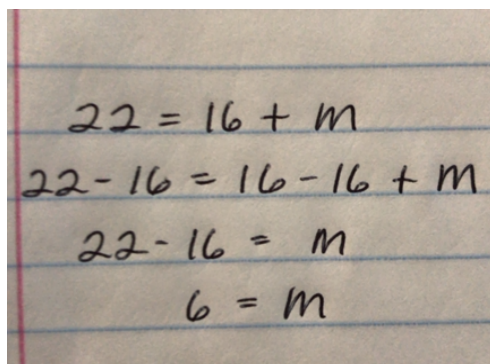 22 = 16 + m
22 - 16 = 16 - 16 + m
22 - 16 = m
6 = m